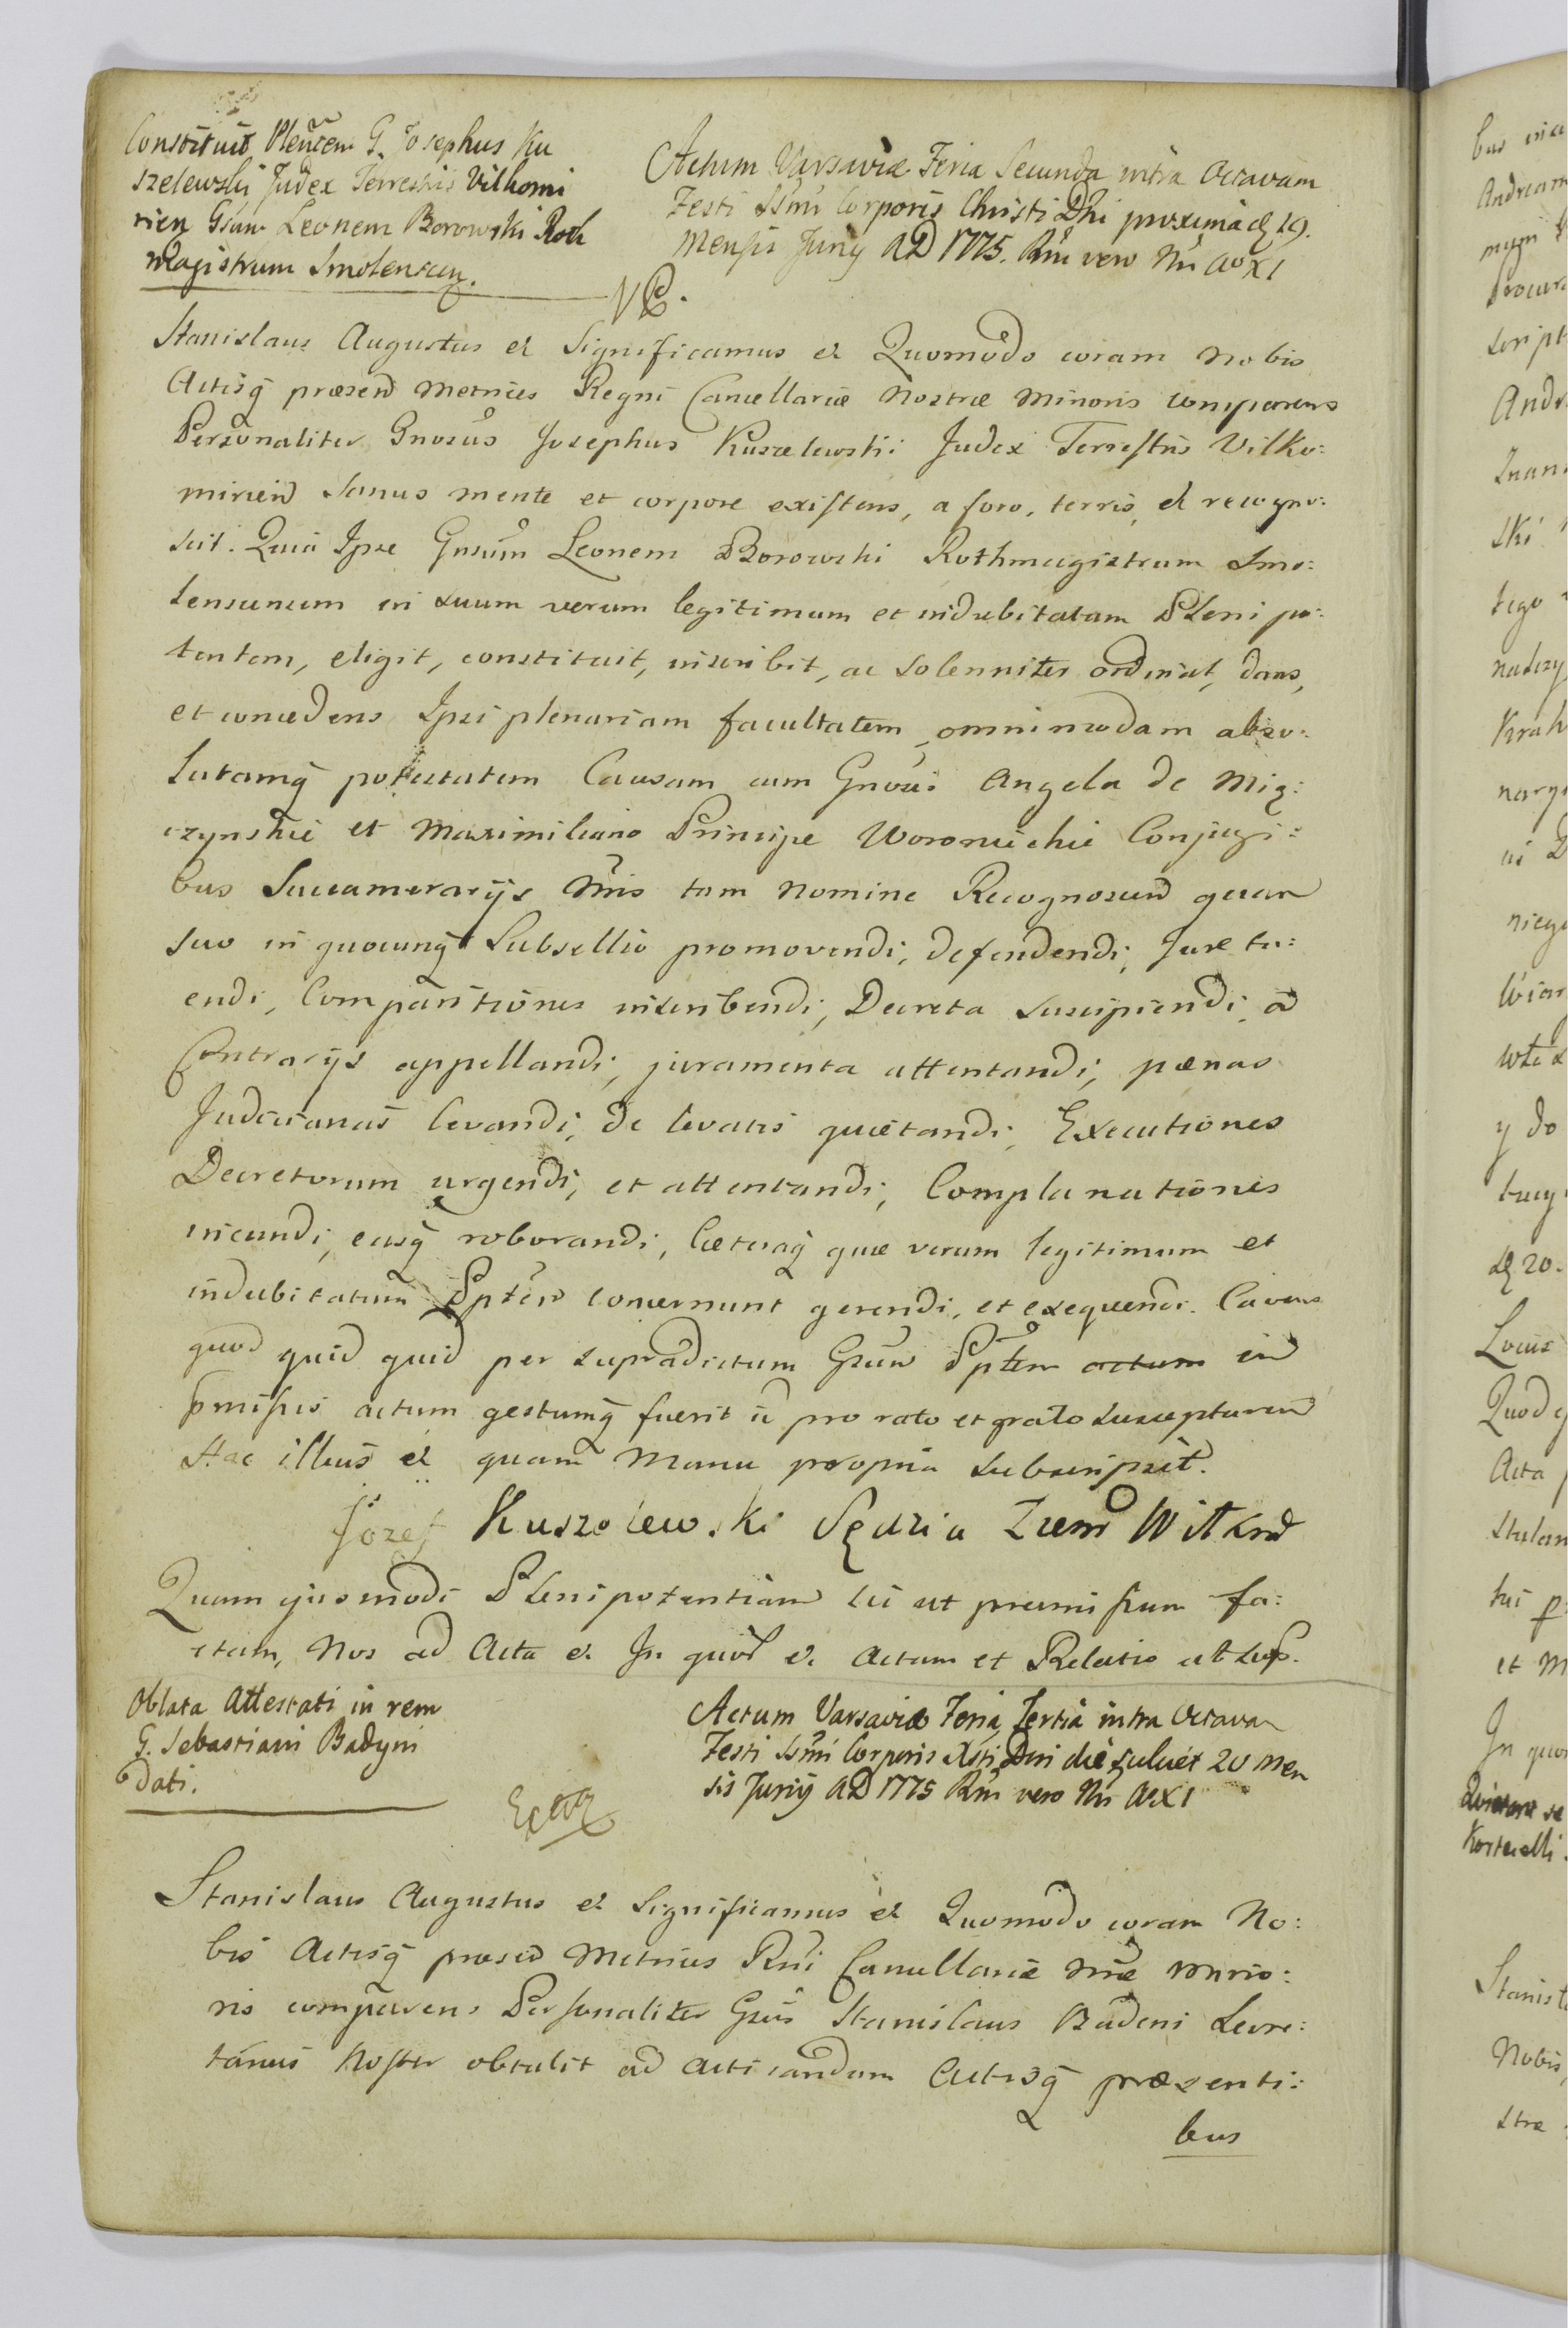 Constituit Plentem G. Josephus Ku
szelewski Judex Terrestris Vilkomi
rien Gsum Leonem Borowski Roth
magistrum Smolenscen.
Actum Varsaviæ Feria Secunda intra Octavam
Festi Ssmi Corporis Christi Dni proxima d. 19.
Mensis Junij AD 1775. Rni vero Nri Ao XI
Stanislaus Augustus et Significamus et Quomodo coram Nobis
Actisq præsend Metrices Regni Cancellariæ Nostræ Minoris comparens
Personaliter Gnosus Josephus Kuszelewski Judex Terrestris Vilko:
miriend Sanus mente et corpore existens, a foro, terris, et recogno:
scit. Quia Ipse Gnsum Leonem Borowski Rothmagistrum Smo:
lenscensem in suum verum legitimum et indubitatum Pleni po:
tentem, eligit, constituit, inscribit, ac Solenniter ordinat, dans,
et concedens Ipsi plenariam facultatem, omnimodam abso:
lutamq potestatem Causam cum Gnosis Angela de Mię:
czynskie et Maximiliano Principe Woronieckie Conjugi:
bus Succamerarijs Nris tam nomine Recognoscend quam
suo in quocunq Subsellio promovendi, defendendi, Jure tu:
endi, Comparitiones inscribendi, Decreta suscipiendi, a
Contrarijs appellandi, juramenta attentandi, pænas
Judicianas levandi, de levatis quietandi, Executiones
Decretorum urgendi, et attentandi, Complanationes
ineundi, easq roborandi, Cæteraq quæ verum legitimum et
indubitatum Plptem concernunt gerendi, et exequendi. Cavens
quod quid quid per supradictum Gsum Plptem actum in
pmissis actum gestumq fuerit id pro rato et grato suscepturum
Hac illius et quam Manu propria subscripsit.
Józef Kuszelewski Sędzia Ziem Wiłkm
Quam ejusmodi Plenipotentiam sic ut præmissum fa:
ctam, Nos ad Acta et In quor et Actum et Relatio ut sup.
Oblata Attestati in rem
G. Sebastiani Badyni
dati.
Actum Varsaviæ Feria Tertia intra Octavam
Festi Ssmi Corporis Xsti Dni die sculicet 20 Men
sis Junij AD 1775 Rni vero Nri Ao XI
Stanislaus Augustus et Significamus et Quomodo coram No:
bis Actisq præsend Metrices Rni Cancellariæ Nræ Mino:
ris comparens Personaliter Gsus Stanislaus Badeni Secre:
tarius Noster obtulit ad Acticandum Actisq præsenti:
bus